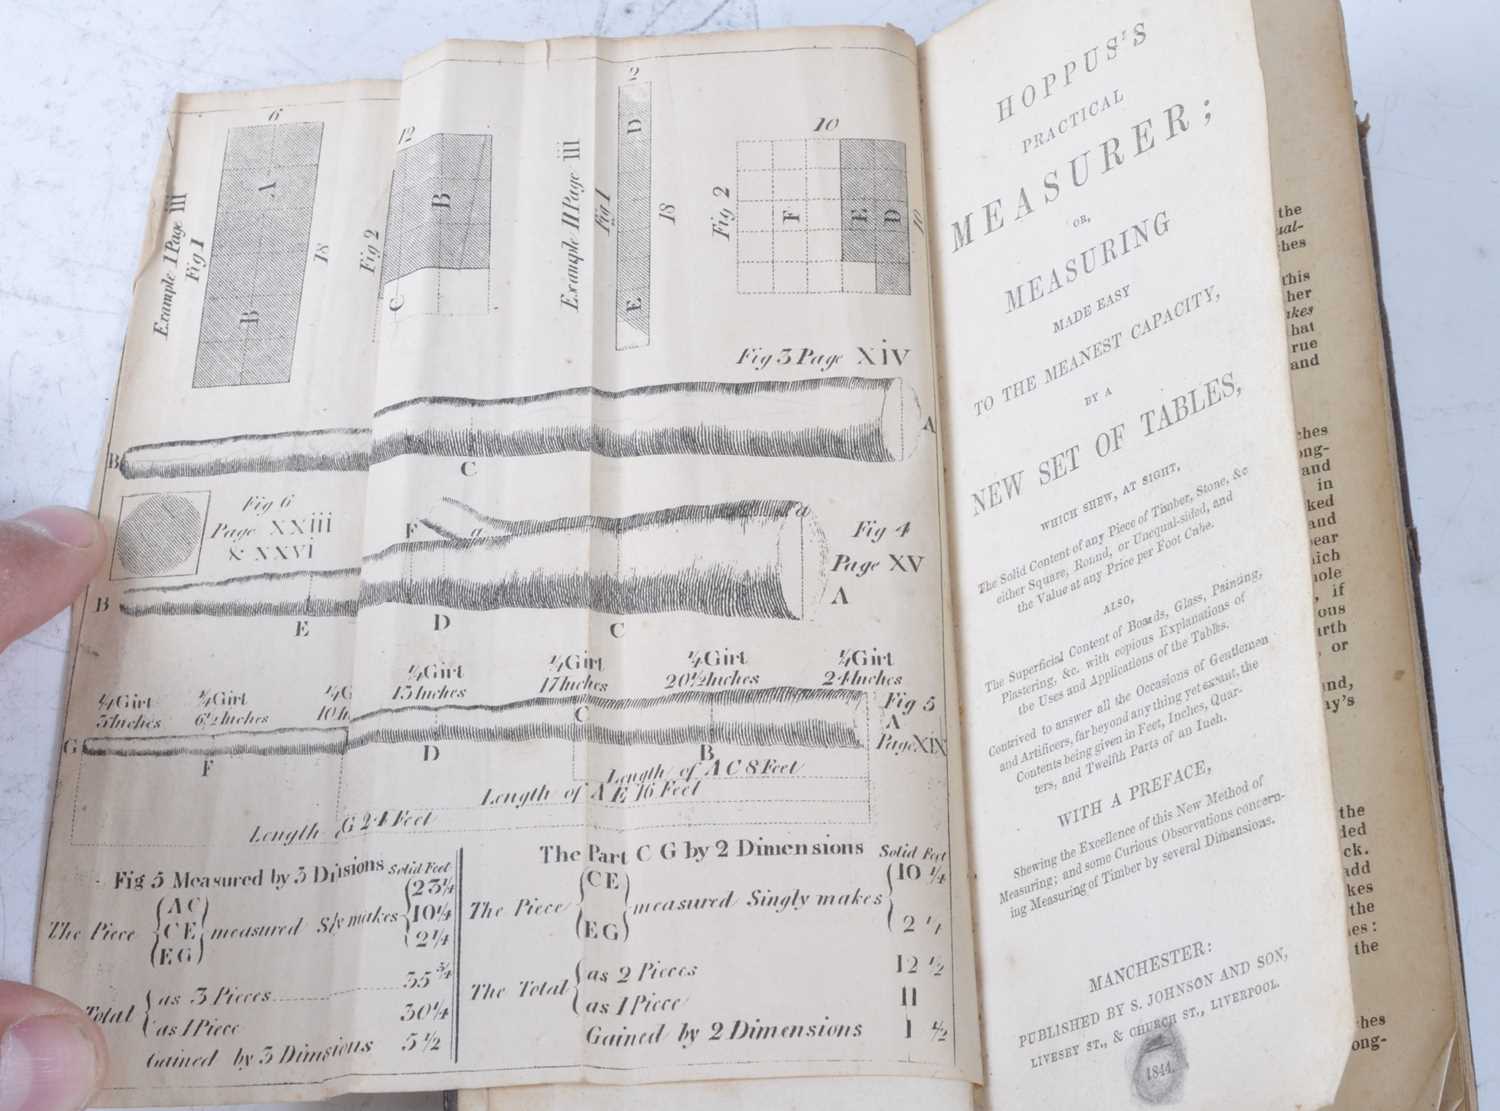 6
A
B
Example 1 Page iii
Fig 1
18
12
B
Fig 2
C
Example II Page iii
Fig 1
2
D
E
18
10
Fig 2
F
E
D
10
Fig 3 Page XiV
B
C
A
Fig 6
Page XXiii
& XXVi
F
a
a
Fig 4
Page XV
A
B
E
D
C
¼ Girt
3 Inches
¼ Girt
6½ Inches
¼ G
10 In
¼ Girt
13 Inches
¼ Girt
17 Inches
¼ Girt
20½ Inches
¼ Girt
24 Inches
Fig 5
A
Page XIX
G
F
D
C
B
Length of A C 8 Feet
Length of A E 16 Feet
Length G 24 Feet
Fig 5 Measured by 3 Dimsions Solid Feet
The Piece { A C } measured Sly makes { 23¼
C E 10¼
E G 2¼
35¾
Total { as 3 Pieces
as 1 Piece 30¼
Gained by 3 Dimsions 5½
The Part C G by 2 Dimensions Solid Feet
The Piece { C E } measured Singly makes { 10 ¼
E G 2 ¼
The Total { as 2 Pieces 12 ½
as 1 Piece 11
Gained by 2 Dimensions 1 ½
HOPPUS'S
PRACTICAL
MEASURER;
OR,
MEASURING
MADE EASY
TO THE MEANEST CAPACITY,
BY A
NEW SET OF TABLES,
WHICH SHEW, AT SIGHT,
The Solid Content of any Piece of Timber, Stone, &c
either Square, Round, or Unequal-sided, and
the Value at any Price per Foot Cube.
ALSO,
The Superficial Content of Boards, Glass, Painting,
Plastering, &c. with copious Explanations of
the Uses and Applications of the Tables.
Contrived to answer all the Occasions of Gentlemen
and Artificers, far beyond any thing yet extant, the
Contents being given in Feet, Inches, Quar-
ters, and Twelfth Parts of an Inch.
WITH A PREFACE,
Shewing the Excellence of this New Method of
Measuring; and some Curious Observations concern-
ing Measuring of Timber by several Dimensions.
MANCHESTER:
PUBLISHED BY S. JOHNSON AND SON,
LIVESEY ST., & CHURCH ST., LIVERPOOL.
1844.
the
ual-
ches
This
her
akes
hat
rue
and
ches
ong-
and
in
ked
and
pear
hich
hole
, if
ous
urth
, or
und,
ay's
the
ded
ck.
add
kes
the
es:
the
ches
ong-